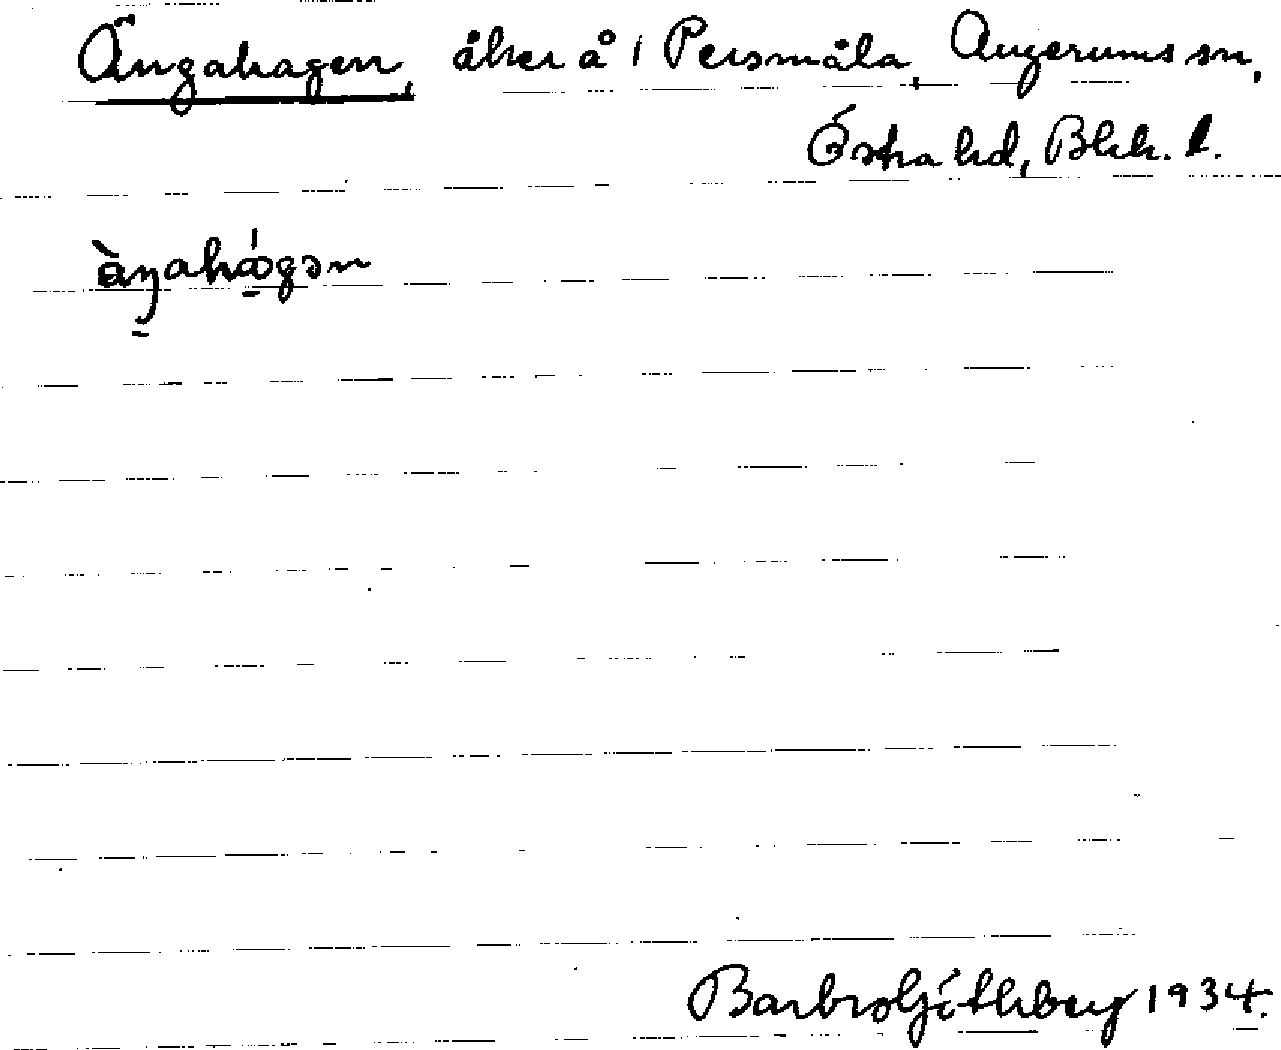 Ängahagen, åker å 1 Persmåla, Augerums sn,
Östra hd, Blek. l.
àŋahǿgən
Barbro Göthberg 1934.